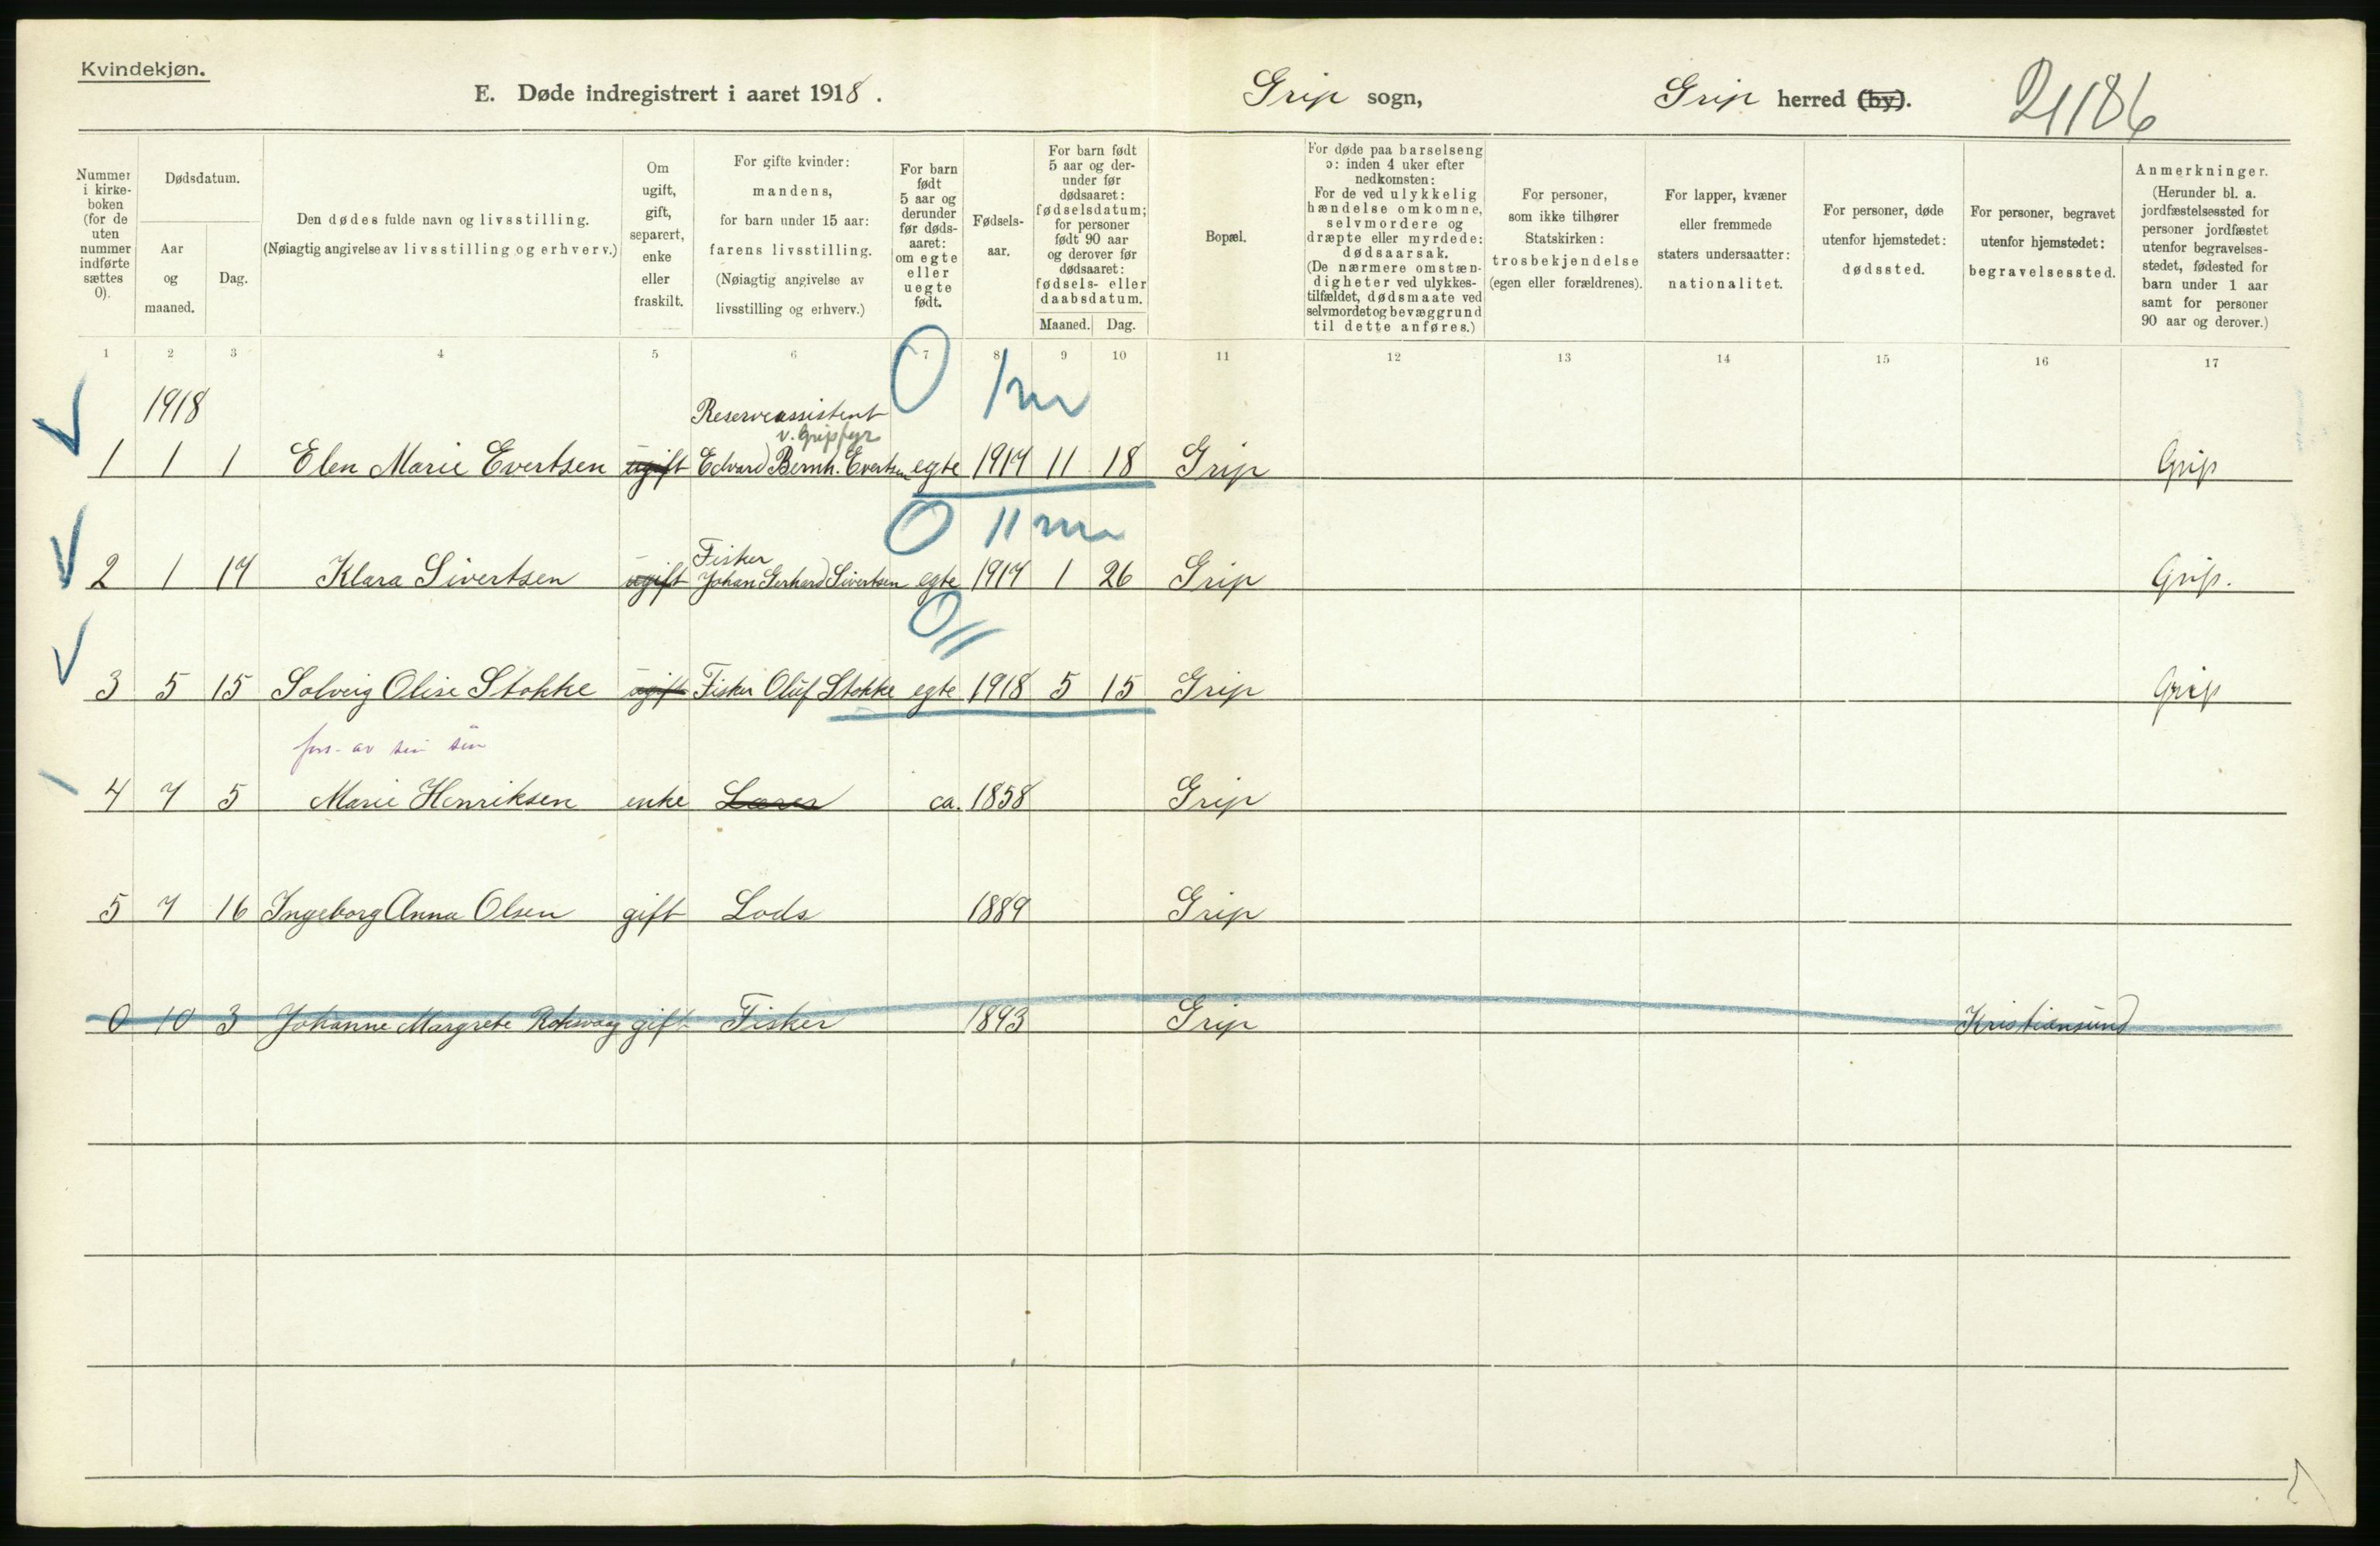 Kvindekjøn.
E. Døde indregistrert i aaret 1918.
Grip sogn,
Grip herred (by).
21186
Nummer i kirke-boken (for de uten nummer indførte sættes 0).
Dødsdatum.
Aar og maaned.
Dag.
Den dødes fulde navn og livsstilling.
(Nøiagtig angivelse av livsstilling og erhverv.)
Om ugift, gift, separert, enke eller fraskilt.
For gifte kvinder: mandens, for barn under 15 aar: farens livsstilling. (Nøiagtig angivelse av livsstilling og erhverv.)
For barn født 5 aar og derunder før døds-aaret: om egte eller uegte født.
Fødsels-aar.
For barn født 5 aar og der-under før dødsaaret: fødselsdatum; for personer født 90 aar og derover før dødsaaret: fødsels- eller daabsdatum.
Maaned.
Dag.
Bopæl.
For døde paa barselseng ɔ: inden 4 uker efter nedkomsten: For de ved ulykkelig hændelse omkomne, selvmordere og dræpte eller myrdede: dødsaarsak. (De nærmere omstæn-digheter ved ulykkes-tilfældet, dødsmaate ved selvmordet og bevæggrund til dette anføres.)
For personer, som ikke tilhører Statskirken: trosbekjendelse (egen eller forældrenes).
For lapper, kvæner eller fremmede staters undersaatter: nationalitet.
For personer, døde utenfor hjemstedet: dødssted.
For personer, begravet utenfor hjemstedet: begravelsessted.
Anmerkninger.
(Herunder bl. a. jordfæstelsessted for personer jordfæstet utenfor begravelses-stedet, fødested for barn under 1 aar samt for personer 90 aar og derover.)
1 2 3 4 5 6 7 8 9 10 11 12 13 14 15 16 17
0 1 m
1918
Reserveassistent
v. Grip fyr
1 1 1 Elen Marie Evertsen ugift Edvard Bernh. Evertsen egte 1917 11 18 Grip Grip
0 11 m
Fisker
2 1 17 Klara Sivertsen ugift Johan Gerhard Sivertsen egte 1917 1 26 Grip Grip.
0
3 5 15 Solveig Olise Stokke ugift Fisker Oluf Stokke egte 1918 5 15 Grip Grip
fors. av sin søn
4 7 5 Marie Henriksen enke ca. 1858 Grip
5 7 16 Ingeborg Anna Olsen gift Lods 1889 Grip
0 10 3 Johanne Margrete Roksvaag gift Fisker 1893 Grip Kristiansund